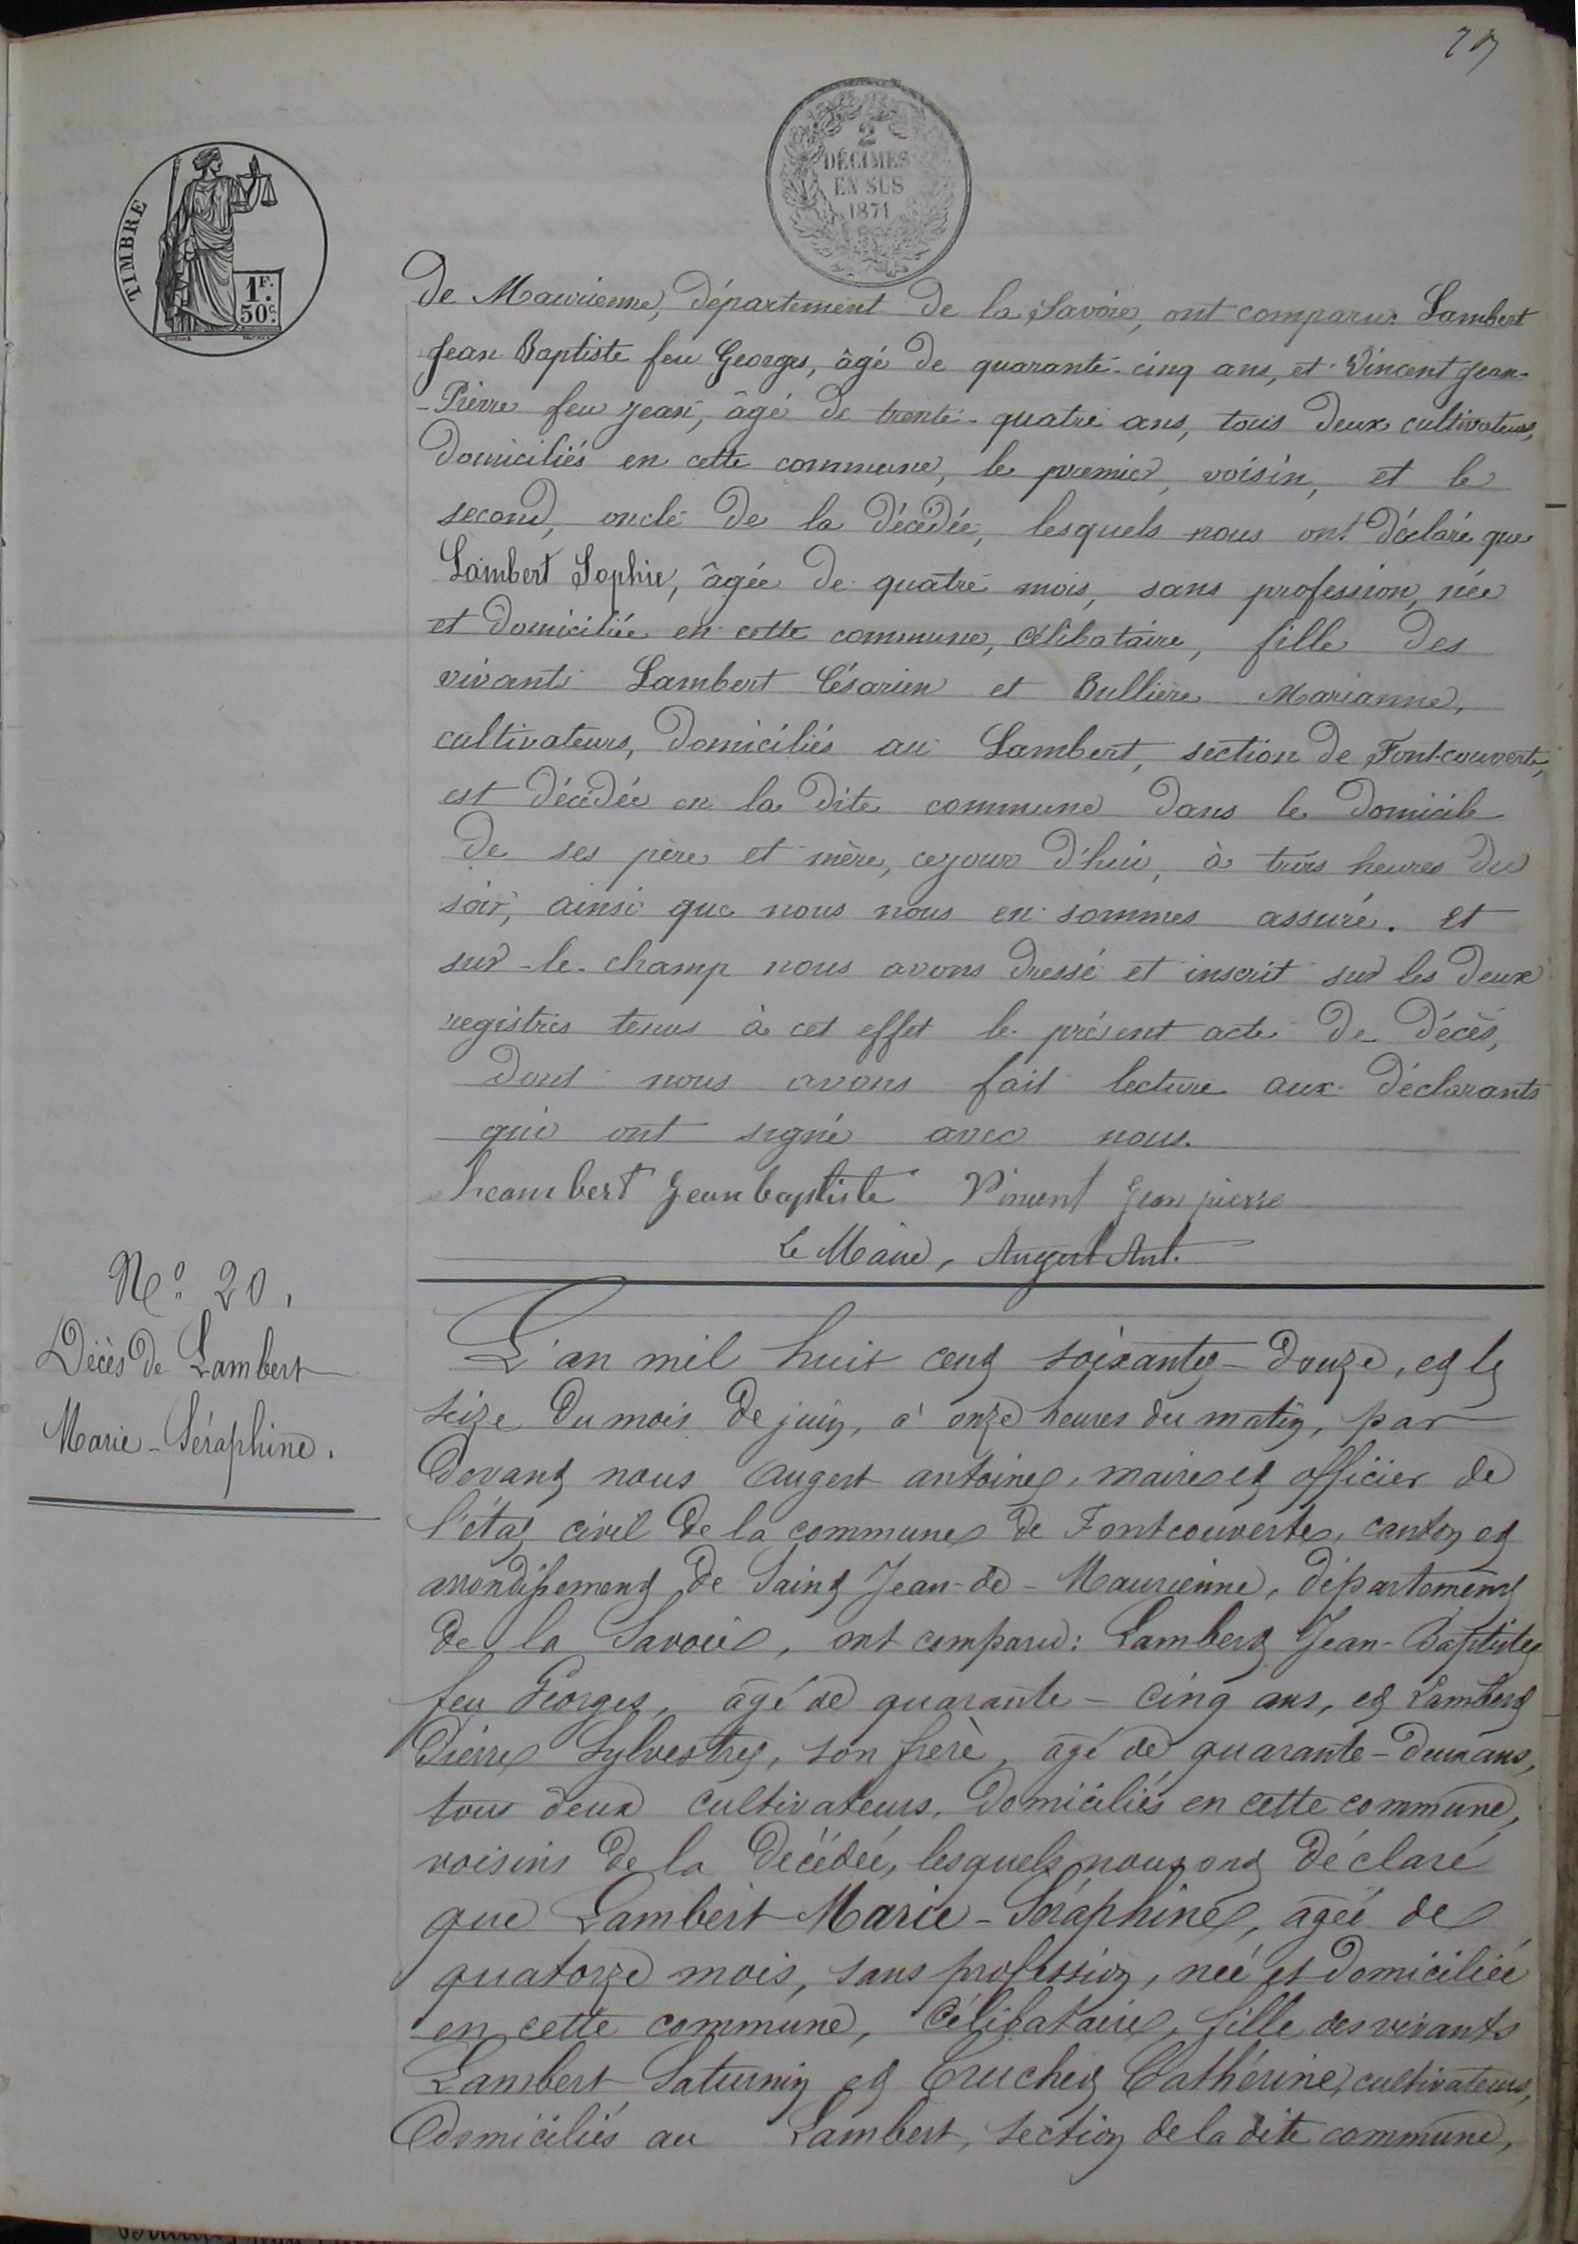 2
DÉCIMES
EN SUS
1871
TIMBRE
1F.
50c.
de Maurienne, département de la Savoie, ont comparu: Lambert
Jean Baptiste feu Georges, âgé de quarante-cinq ans, et Vincent Jean-
-Pierre feu Jean, âgé de trente-quatre ans, tous deux cultivateurs,
domiciliés en cette commune, le premier, voisin, et le
second, oncle de la décédée, lesquels nous ont déclaré que
Lambert Sophie, âgée de quatre mois, sans profession, née
et domiciliée en cette commune, célibataire, fille des
vivants Lambert Césarien et Bullière Marianne,
cultivateurs, domiciliés au Lambert, section de Fontcouverte,
est décédée en la dite commune dans le domicile
de ses père et mère, cejour d'hui, à trois heures du
soir, ainsi que nous nous en sommes assuré. Et
sur-le-champ nous avons dressé et inscrit sur les deux
registres tenus à cet effet le présent acte de décès,
dont nous avons fait lecture aux déclarants
qui ont signé avec nous.
Lambert Jean baptiste Vincent Jean pierre
Le Maire, Augert Ant.
No. 20.
Décès de Lambert
Marie-Séraphine.
L'an mil huit cent soixante-douze, et le
seize du mois de juin, à onze heures du matin, par
devant nous Augert antoine, maire et officier de
l'état civil de la commune de Fontcouverte, canton et
arrondissement de Saint Jean-de-Maurienne, département
de la Savoie, ont comparu: Lambert Jean-Baptiste
feu Georges, âgé de quarante-cinq ans, et Lambert
Pierre Sylvestre, son frère, âgé de quarante-deux ans,
tous deux cultivateurs, domiciliés en cette commune,
voisins de la décédée, lesquels nous ont déclaré
que Lambert Marie-Séraphine, âgée de
quatorze mois, sans profession, née et domiciliée
en cette commune, célibataire, fille des vivants
Lambert Saturnin et Truchet Cathérine, cultivateurs,
domiciliés au Lambert, section de la dite commune,